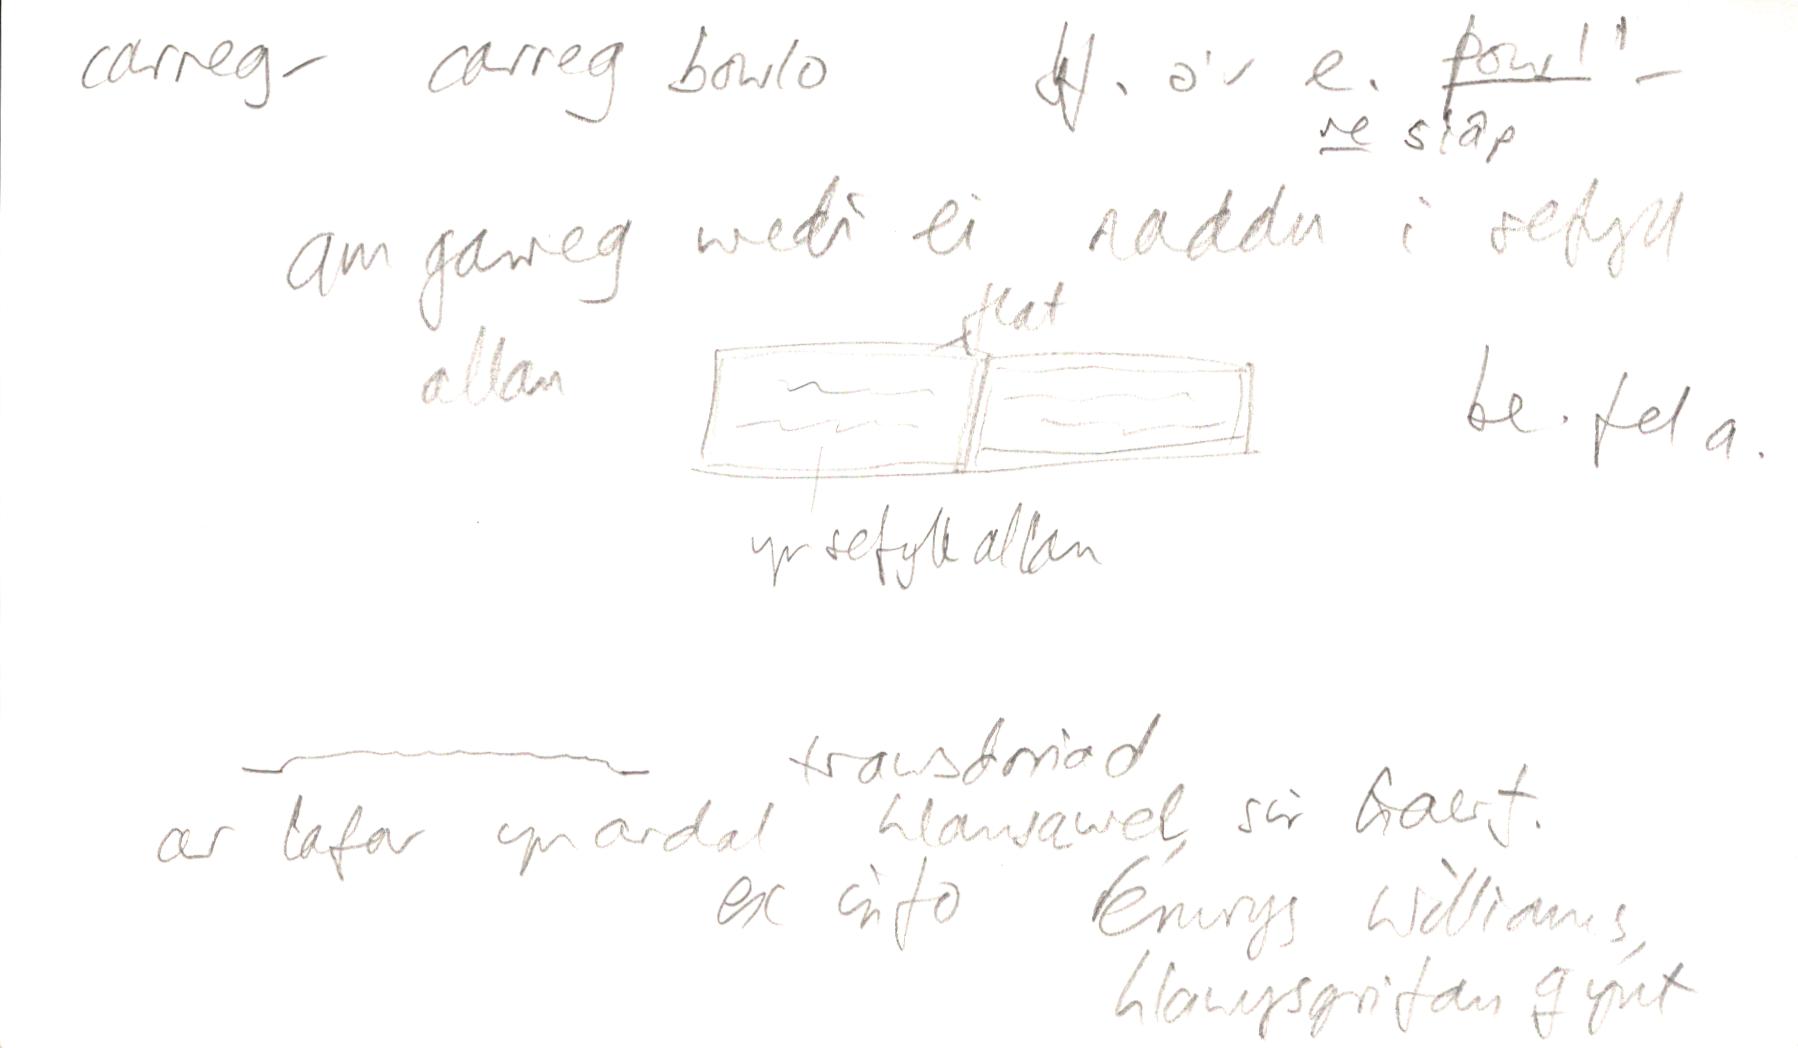 carreg - carreg bowlo ff. o'r e. powl" -
re siâp
am garreg wedi ei naddu i sefyll
flat
allan
be. fel a.
yr sefyll allan
trawstoriad
ar lafar yn ardal Llansawel, sir Gaerf.
ex info Emrys Williams,
Llanysgrifan gynt